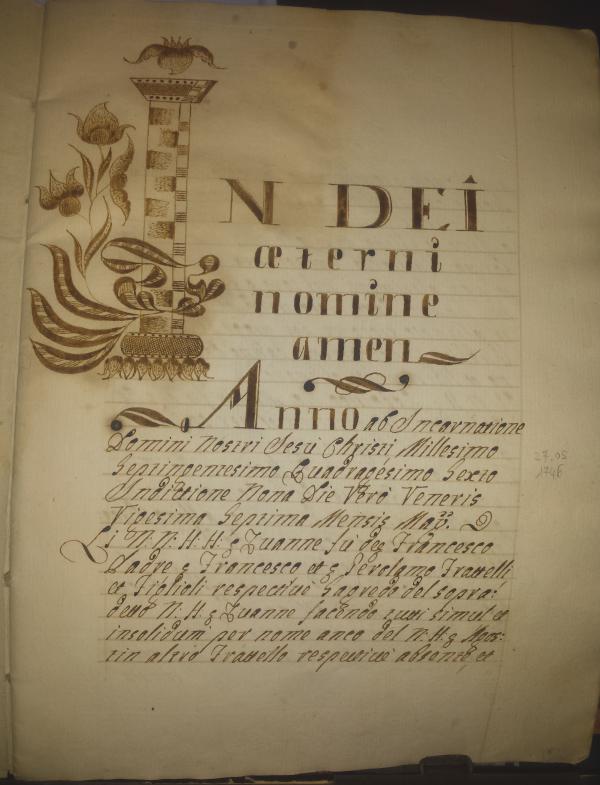 IN DEI
æterni
nomine
amen
Anno ab Incarnatione
Domini Nostri Iesu Christi Millesimo
Septingentesimo Quadragesimo Sexto
Indictione Nona Die Vero Veneris
Vigesima Septima Mensis
Li N: N: H: H: Zuanne fu Francesco
Padre Francesco et Gerolamo Frattelli
et Figlioli respectivè Sagredo del sopra:
detto N: H: Zuanne facendo tutti simul et
insolidum per nome anco del N: H: Agos:
tin altro Frattello respectivè absente, et
27.05
1746